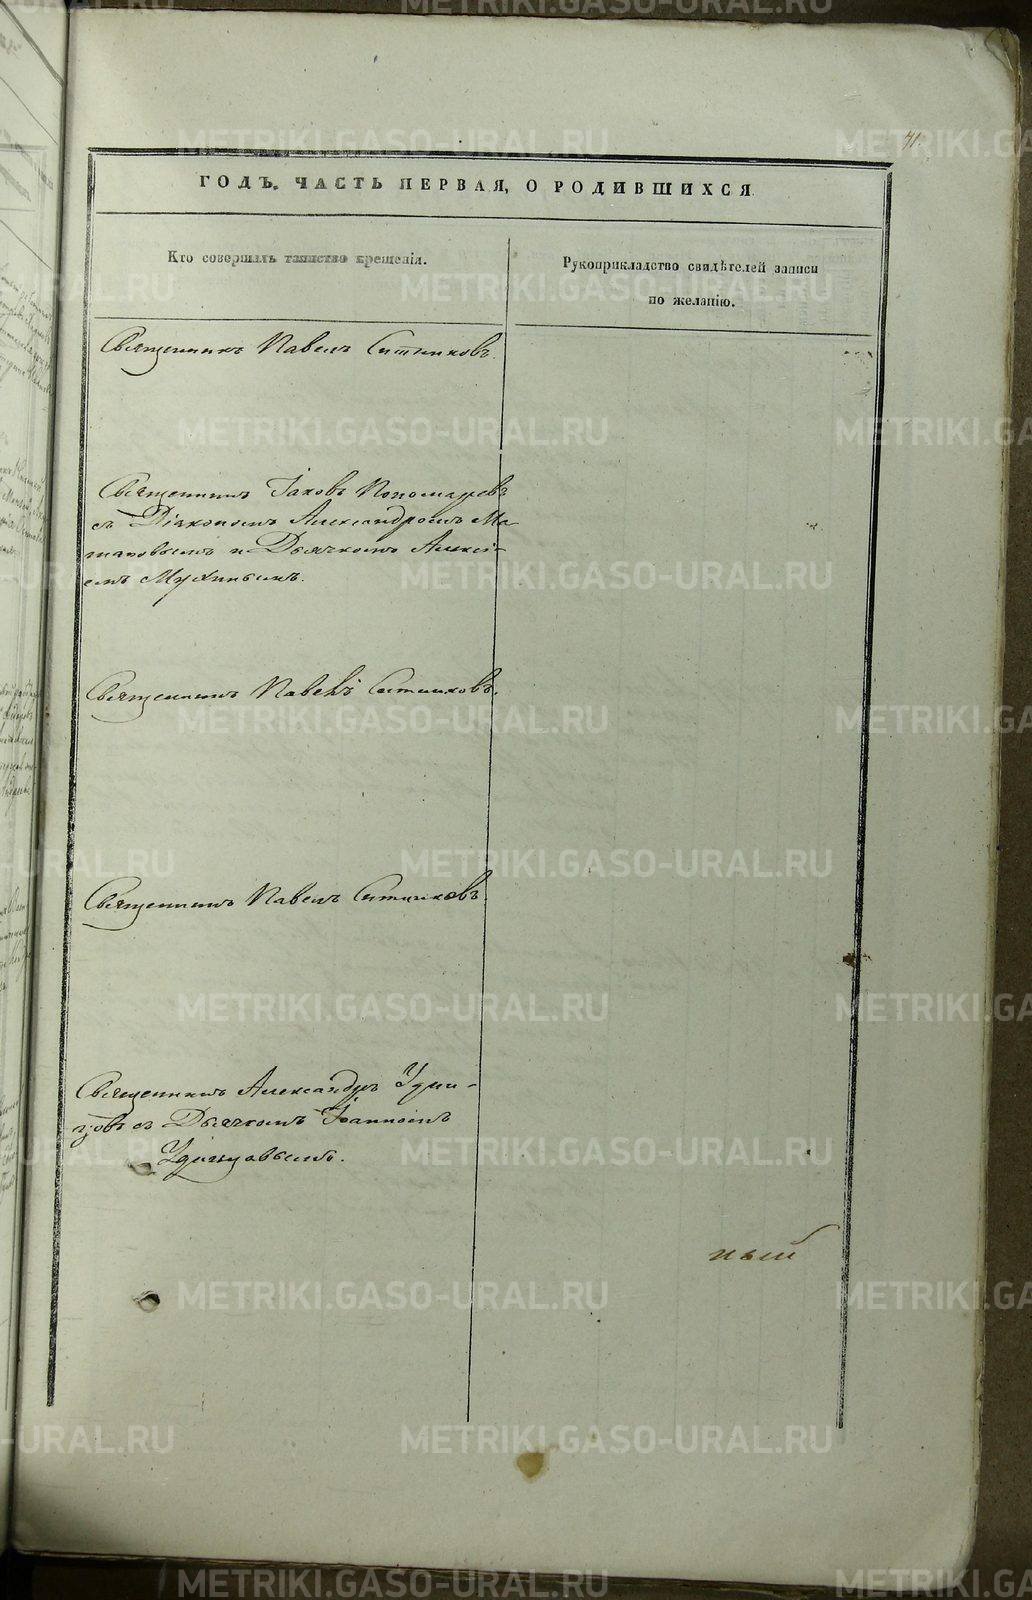 41.
ГОДЪ. ЧАСТЬ ПЕРВАЯ, О РОДИВШИХСЯ
Кто совершалъ таинство крещенія.
Рукоприкладство свидѣтелей записи
по желанію.
Священникъ Павелъ Ситниковъ.
Священникъ Іаковъ Пономаревъ
съ Діакономъ Александромъ Ма-
маковымъ и Дьячкомъ Алексі-
емъ Мухинымъ.
Священникъ Павелъ Ситниковъ.
Священникъ Павелъ Ситниковъ.
Священникъ Александръ Удин-
цовъ съ Дьячкомъ Іоанномъ
Удинцовымъ.
ный
METRIKI.GASO-URAL.RU